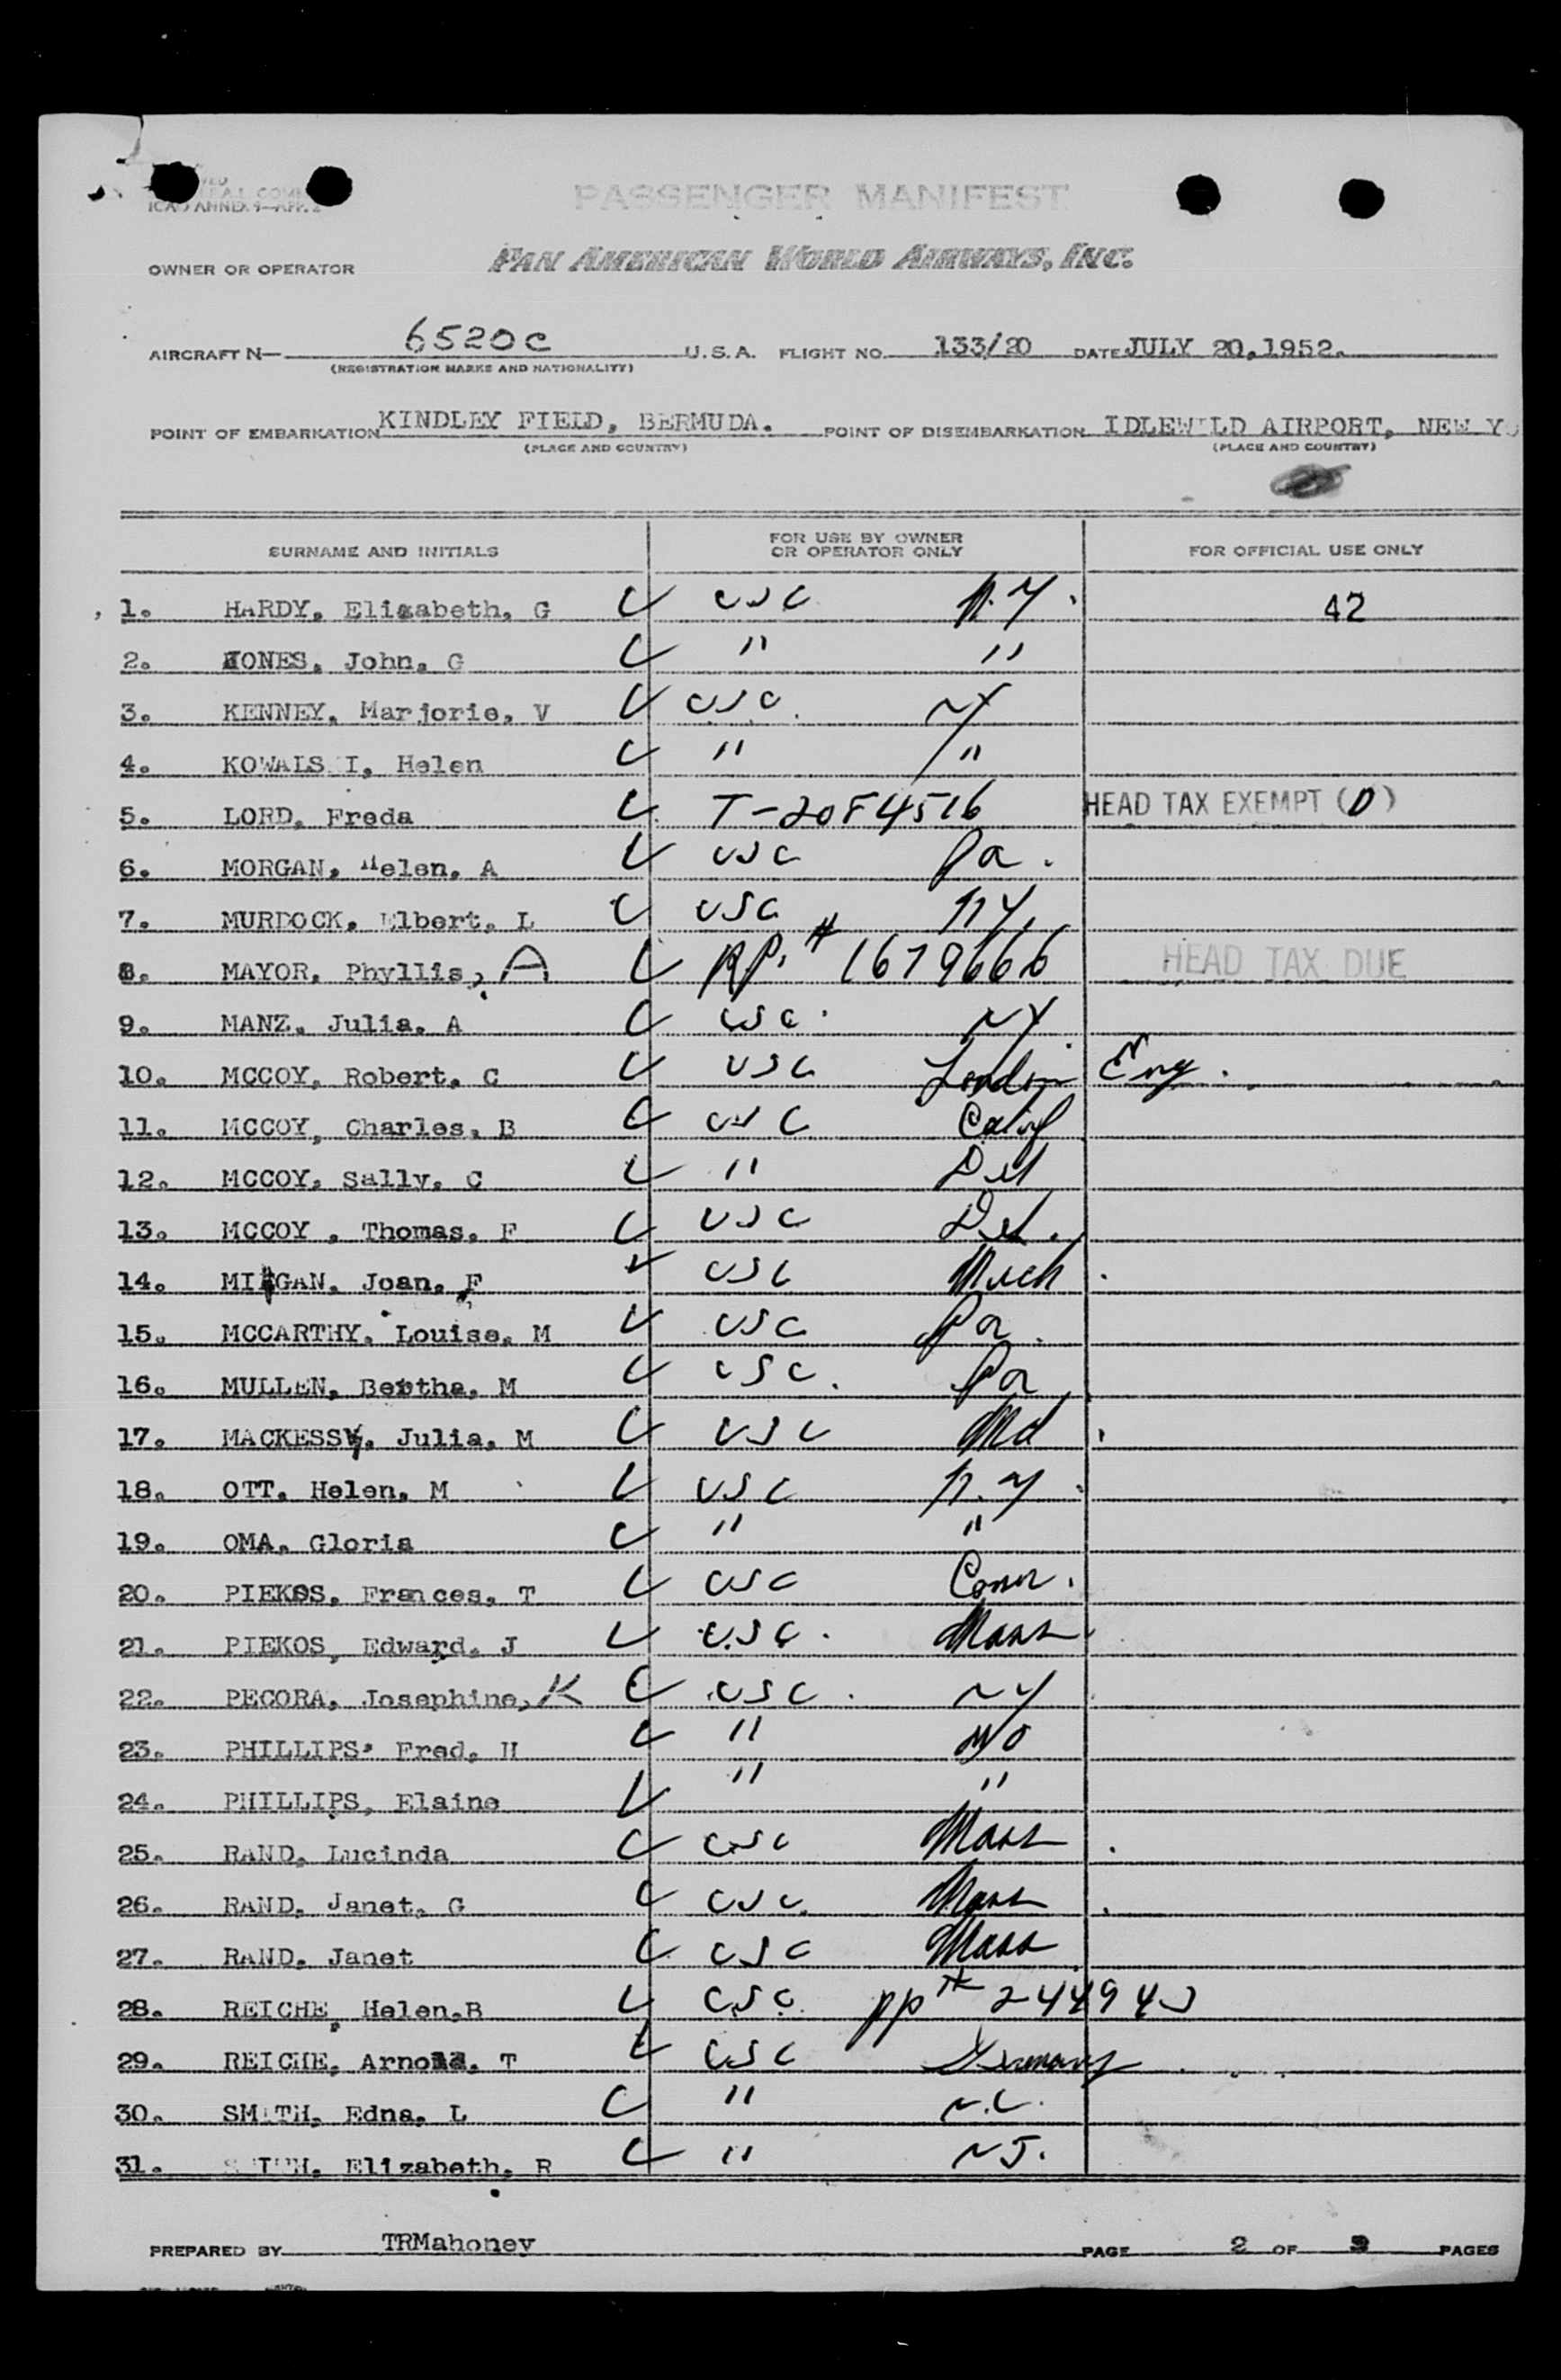 ICAO ANNEX 9—APP. 2
PASSENGER MANIFEST
OWNER OR OPERATOR PAN AMERICAN WORLD AIRWAYS, INC.
AIRCRAFT N— 6520C U.S.A. FLIGHT NO. 133/20 DATE JULY 20,1952.
(REGISTRATION MARKS AND NATIONALITY)
POINT OF EMBARKATION KINDLEY FIELD, BERMUDA. POINT OF DISEMBARKATION IDLEWILD AIRPORT, NEW YO
(PLACE AND COUNTRY) (PLACE AND COUNTRY)
SURNAME AND INITIALS FOR USE BY OWNER OR OPERATOR ONLY FOR OFFICIAL USE ONLY
1. HARDY, Elizabeth, G USC N.Y. 42
2. JONES, John, G " "
3. KENNEY, Marjorie, V USC. NY
4. KOWALSKI, Helen " "
5. LORD, Freda T-20F4516 HEAD TAX EXEMPT (D)
6. MORGAN, Helen, A USC Pa.
7. MURDOCK, Elbert, L USC NY.
8. MAYOR, Phyllis, A RP. # 1679666 HEAD TAX DUE
9. MANZ, Julia, A USC. NY.
10. MCCOY, Robert, C USC London Eng.
11. MCCOY, Charles, B USC Calif
12. MCCOY, Sally, C " Del
13. MCCOY , Thomas, F USC Del.
14. MI GAN, Joan, F USC Mich.
15. MCCARTHY, Louise, M USC Pa.
16. MULLEN, Bertha, M USC. Pa
17. MACKESSY, Julia, M USC Md.
18. OTT, Helen, M USC N.Y.
19. OMA, Gloria " "
20. PIEKOS, Frances, T USC Conn.
21. PIEKOS, Edward, J USC. Mass.
22. PECORA, Josephine, K USC. NY
23. PHILLIPS, Fred, H " Mo
24. PHILLIPS, Elaine " "
25. RAND, Lucinda USC Mass.
26. RAND, Janet, G USC. Mass.
27. RAND, Janet USC Mass
28. REICHE, Helen,B USC. pp#
29. REICHE, Arnold, T USC Germany
30. SMITH, Edna, L " N.C.
31. SMITH, Elizabeth, R " NJ.
PREPARED BY TRMahoney PAGE 2 OF 3 PAGES